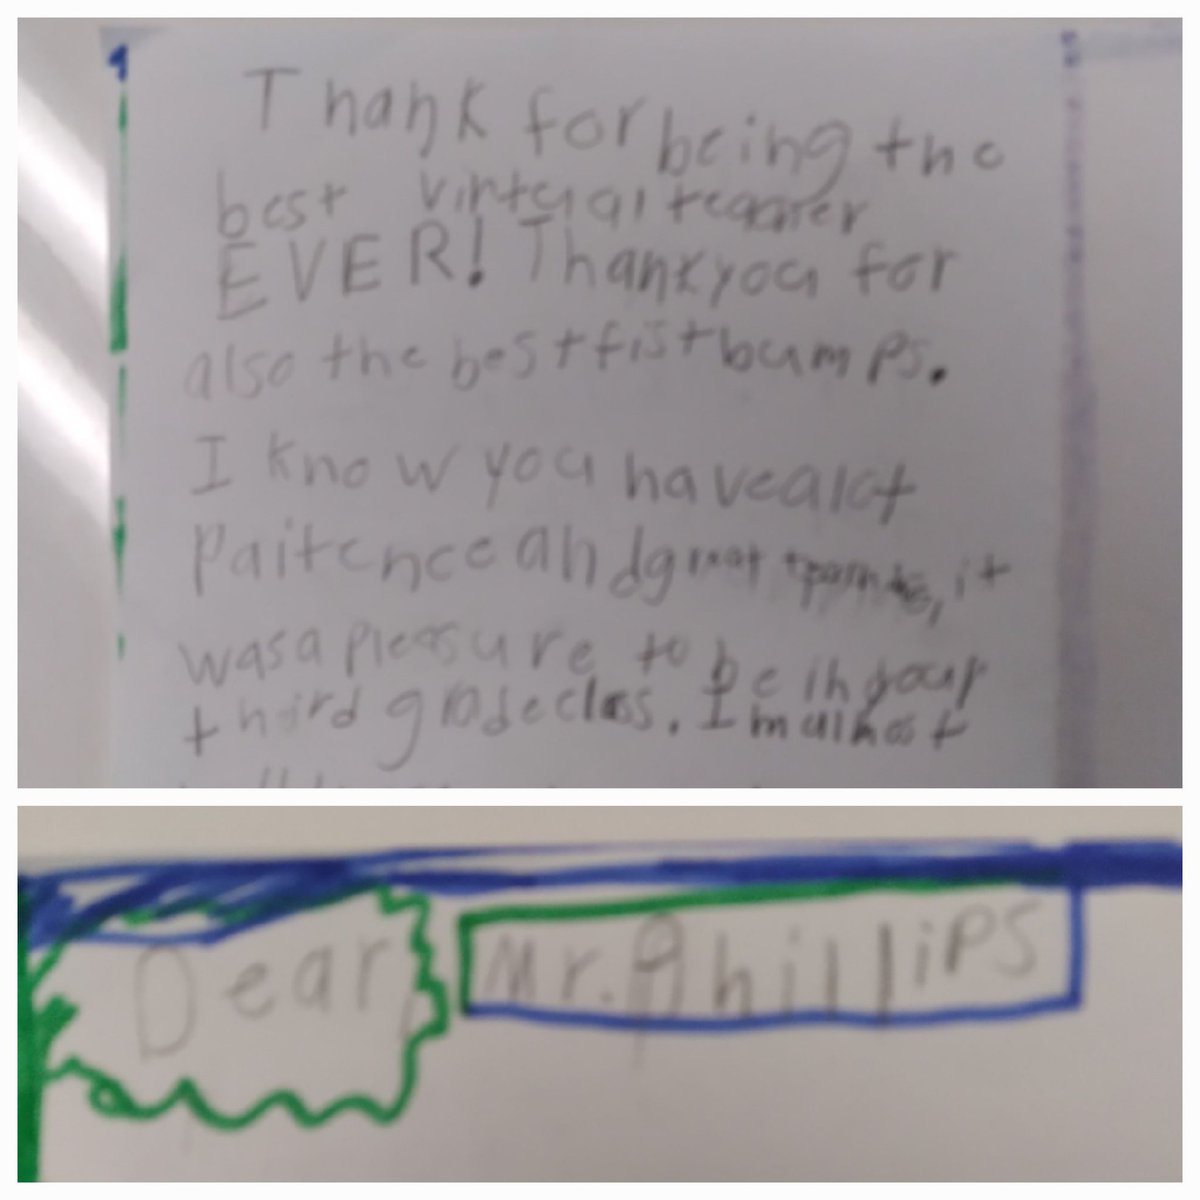 Thank for being the
best virtual
EVER! Thankyou for
also the best fist bumps.
I know you have alot
paitence and great
it
was a pleasure to be in your
third grade class. Im almost
Dear,
Mr. Phillips